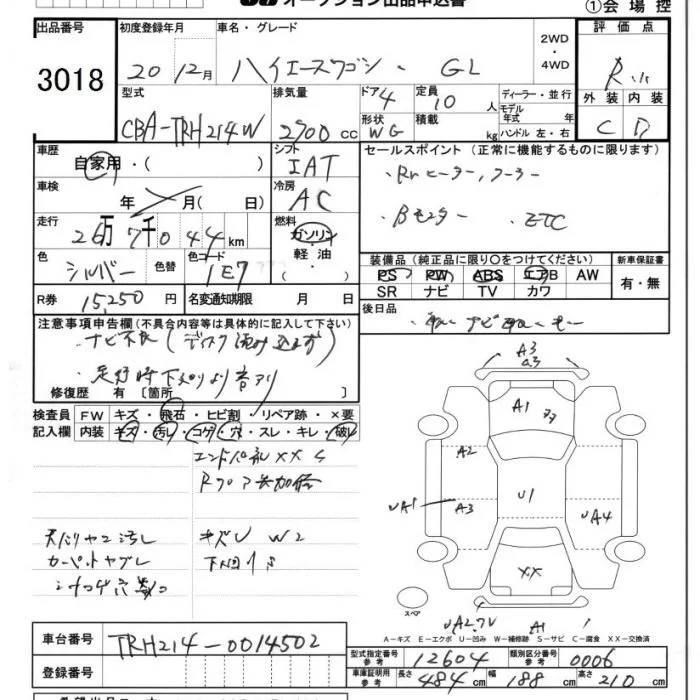 オークション出品申込書
①会場控
出品番号 初度登録年月 車名・グレード 評価点
3018 20 12月 ハイエースワゴン・GL 2WD・4WD R
型式 排気量 ドア 定員 ディーラー・並行 外装 内装
CBA-TRH214W 2700cc 4 10人 モデル年式 年 C D
形状 積載 ハンドル 左・右
WG kg
車歴 シフト セールスポイント (正常に機能するものに限ります)
自家用・( ) IAT ・Rrヒーター,クーラー
車検 冷房 ・Bモニター ・ETC
年 月(日) AC
走行 燃料
26万7千044km ガソリン・軽油・( )
色 色替 色コード 装備品 (純正品に限り○をつけてください) 新車保証書
シルバー 1E7 PS PW ABS エアB AW 有・無
SR ナビ TV カワ
R券 15,250円 名変通知期限 月 日 後日品
注意事項申告欄 (不具合内容等は具体的に記入して下さい)
・ナビ不良(ディスク読み込まず)
・走行時下廻りより音アリ
修復歴 有 [箇所 ]
検査員記入欄 FW キズ・飛石・ヒビ割・リペア跡・×要
内装 キズ・汚レ・コゲ・穴・スレ・キレ・破レ
エンドパネルXX S
天バリヤニ汚レ キズU W2
カーペットヤブレ 下回りS
シートコゲ穴
A3
A3
A1
A2
UA1 A3 U1 UA4
XX
スペア
A1
A-キズ E-エクボ U-凹み W-補修跡 S-サビ C-腐食 XX-交換済
車台番号 TRH214-0014502
型式指定番号 参考 12604 類別区分番号 参考 0006
登録番号
車庫証明用参考 長さ 484cm 幅 188cm 高さ 210cm